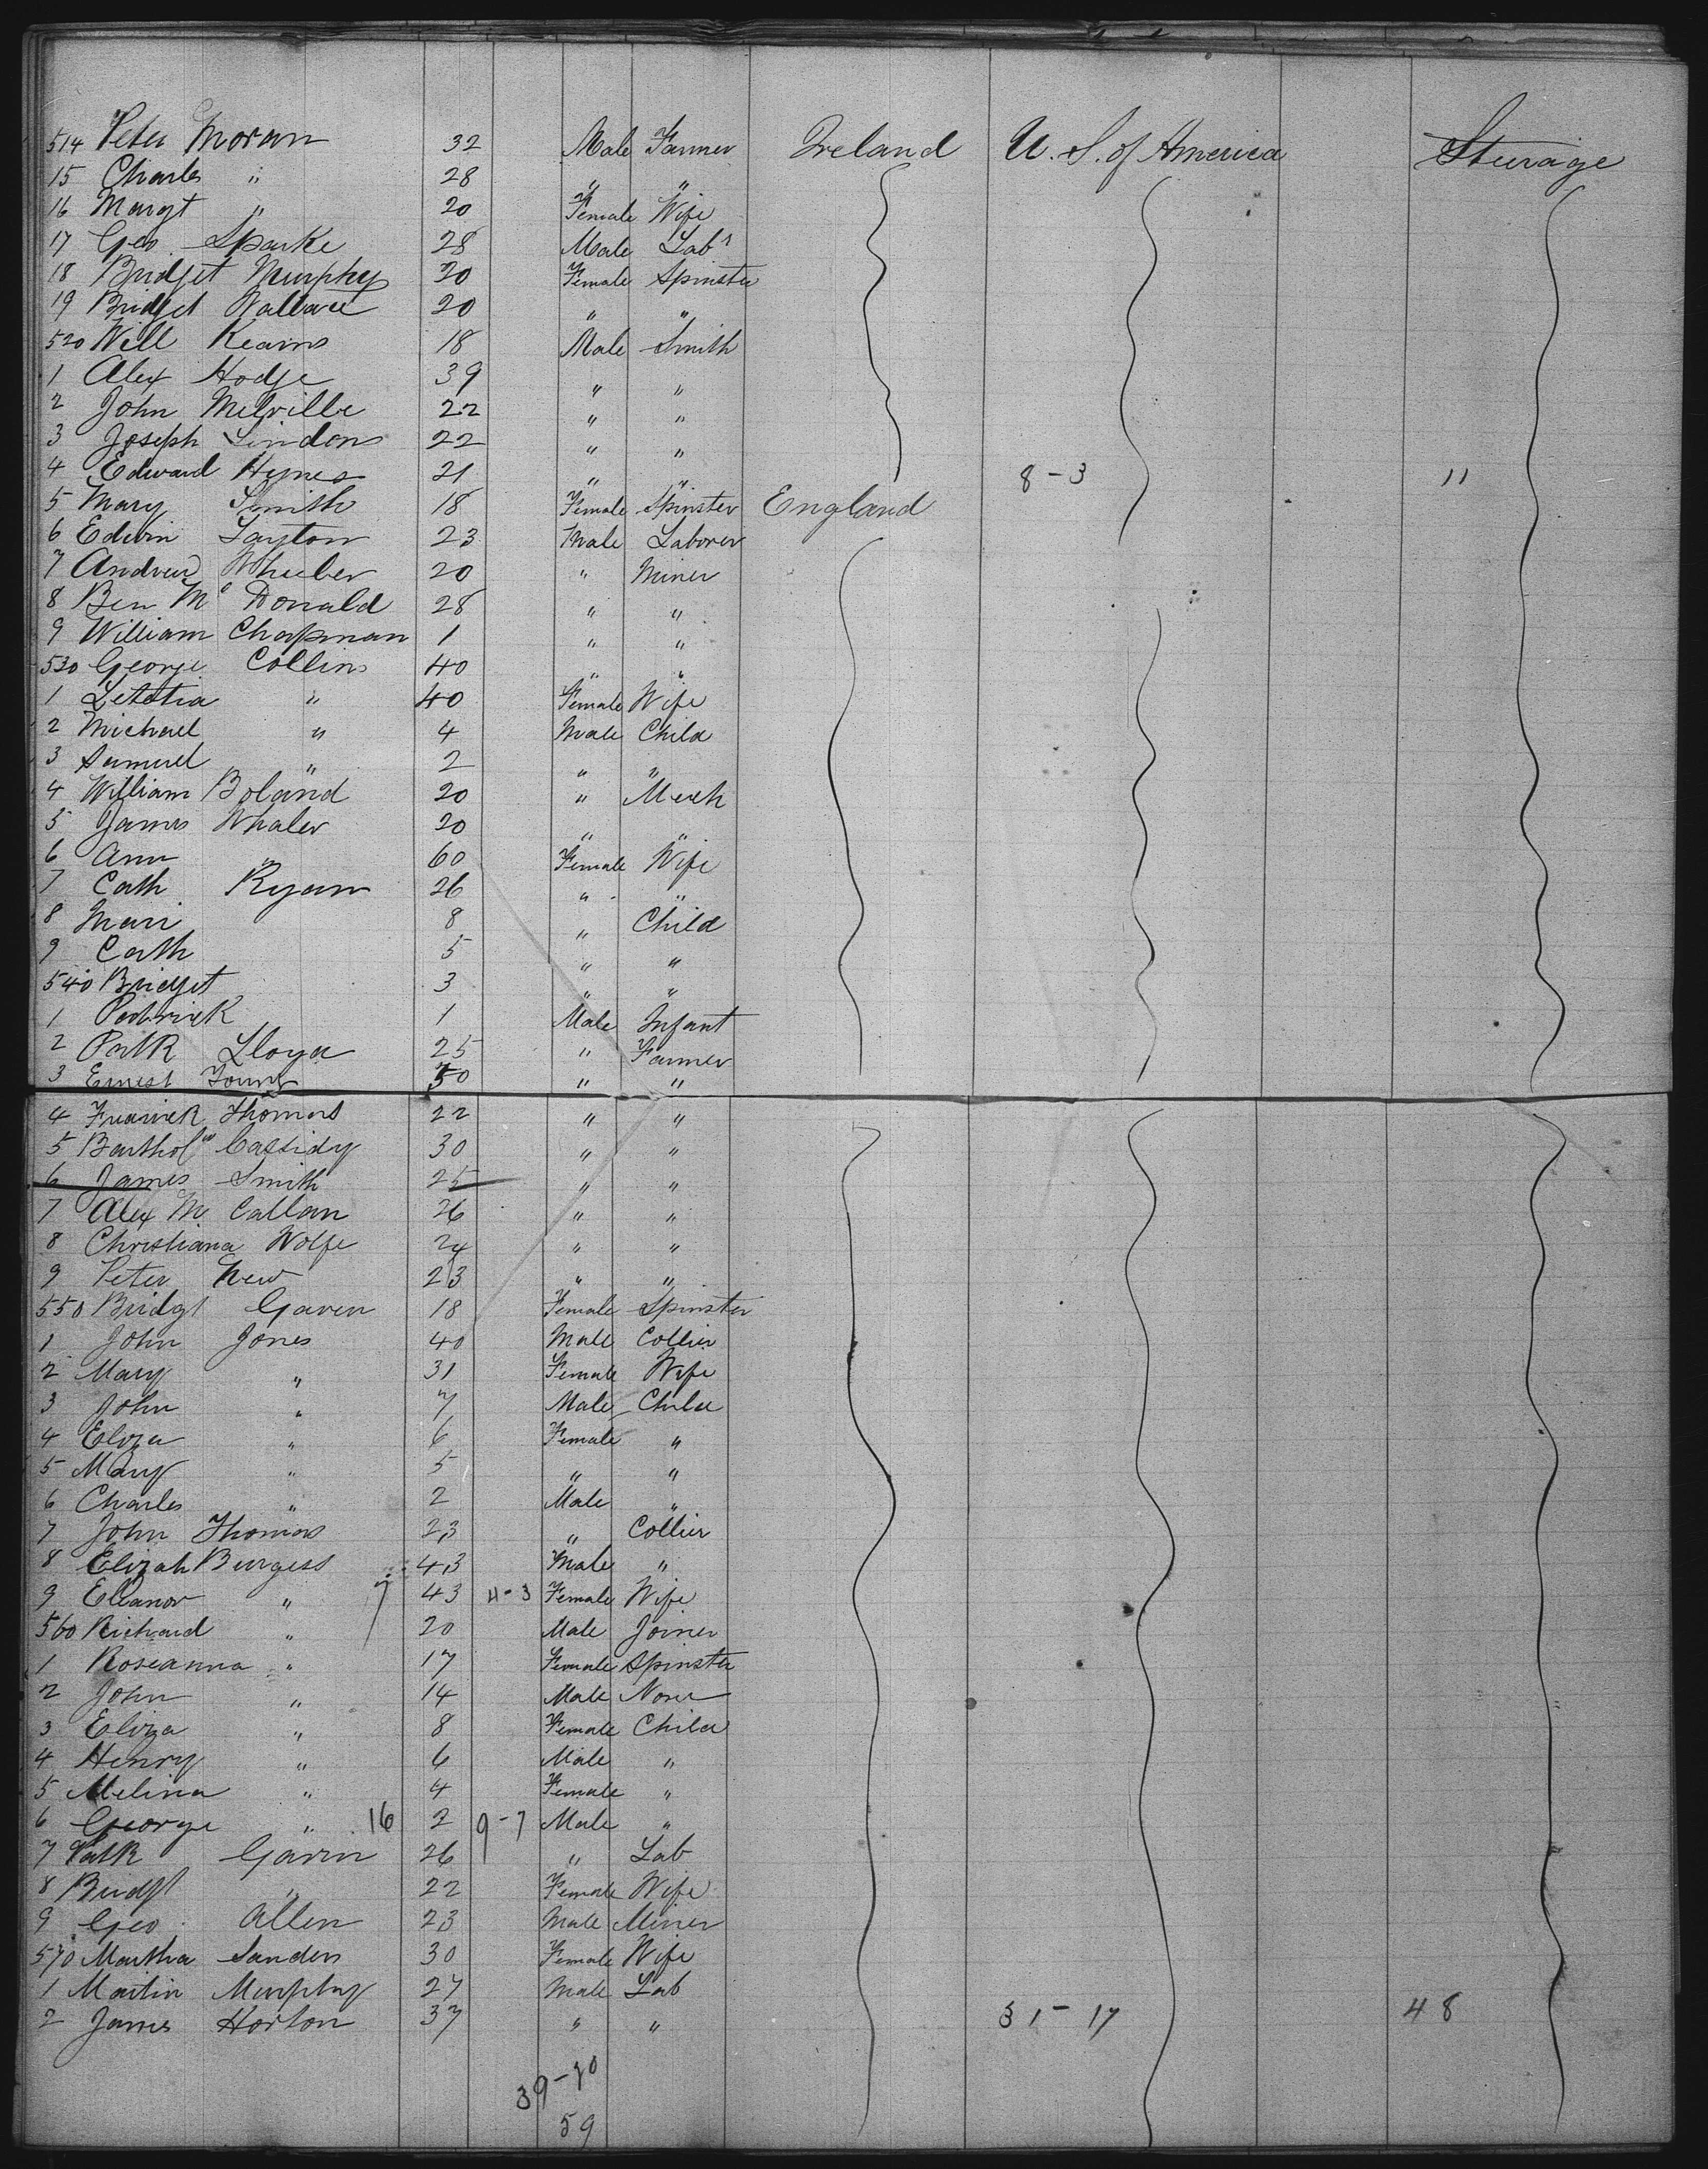 514 Peter Moran 32 Male Farmer Ireland U. S. of America Sturage
15 Charles " 28 " "
16 Margt " 20 Female Wife
17 Geo Sparke 28 Male Labr
18 Bridget Murphy 20 Female Spinster
19 Bridget Wallace 20 " "
520 Will Kearns 18 Male Smith
1 Alex Hodge 39 " "
2 John Melville 22 " "
3 Joseph Lindons 22 " "
4 Edward Hynes 21 " " 8-3 11
5 Mary Smith 18 Female Spinster England
6 Edwin Layton 23 Male Laborer
7 Andrew Wheeler 20 " Miner
8 Ben Mc Donald 28 " "
9 William Chapman 1 " "
530 George Collins 40 " "
1 Letitia " 40 Female Wife
2 Michael " 4 Male Child
3 Samuel " 2 " "
4 William Boland 20 " Mech
5 James Whaler 20 " "
6 Ann " 60 Female Wife
7 Cath Ryan 26 " "
8 Mari 8 " Child
9 Cath 5 " "
540 Bridget 3 " "
1 Patrick 1 Male Infant
2 Patk Lloyd 25 " Farmer
3 Ernest Young " "
4 Fredrick Thomas 22 " "
5 Bartholw Cassidy 30 " "
6 James Smith 25 " "
7 Alex Mc Callan 26 " "
8 Christiana Wolfe 24 " "
9 Peter New 23 " "
550 Bridgt Gaven 18 Female Spinster
1 John Jones 40 Male Collier
2 Mary " 31 Female Wife
3 John " 7 Male Child
4 Eliza " 6 Female "
5 Mary " 5 " "
6 Charles " 2 Male "
7 John Thomas 23 " Collier
8 Elizah Burgess 43 Male "
9 Elleanor " 7 43 4-3 Female Wife
560 Richard " 20 Male Joiner
1 Roseanna " 17 Female Spinster
2 John " 14 Male None
3 Eliza " 8 Female Child
4 Henry " 6 Male "
5 Melina " 4 Female "
6 George " 16 2 9-7 Male "
7 Patk Gavin 26 " Lab
8 Bridgt " 22 Female Wife
9 Geo. Allen 23 Male Miner
570 Martha Sanders 30 Female Wife
1 Martin Murphy 27 Male Lab
2 James Horton 37 " " 31-17 48
39-20
59